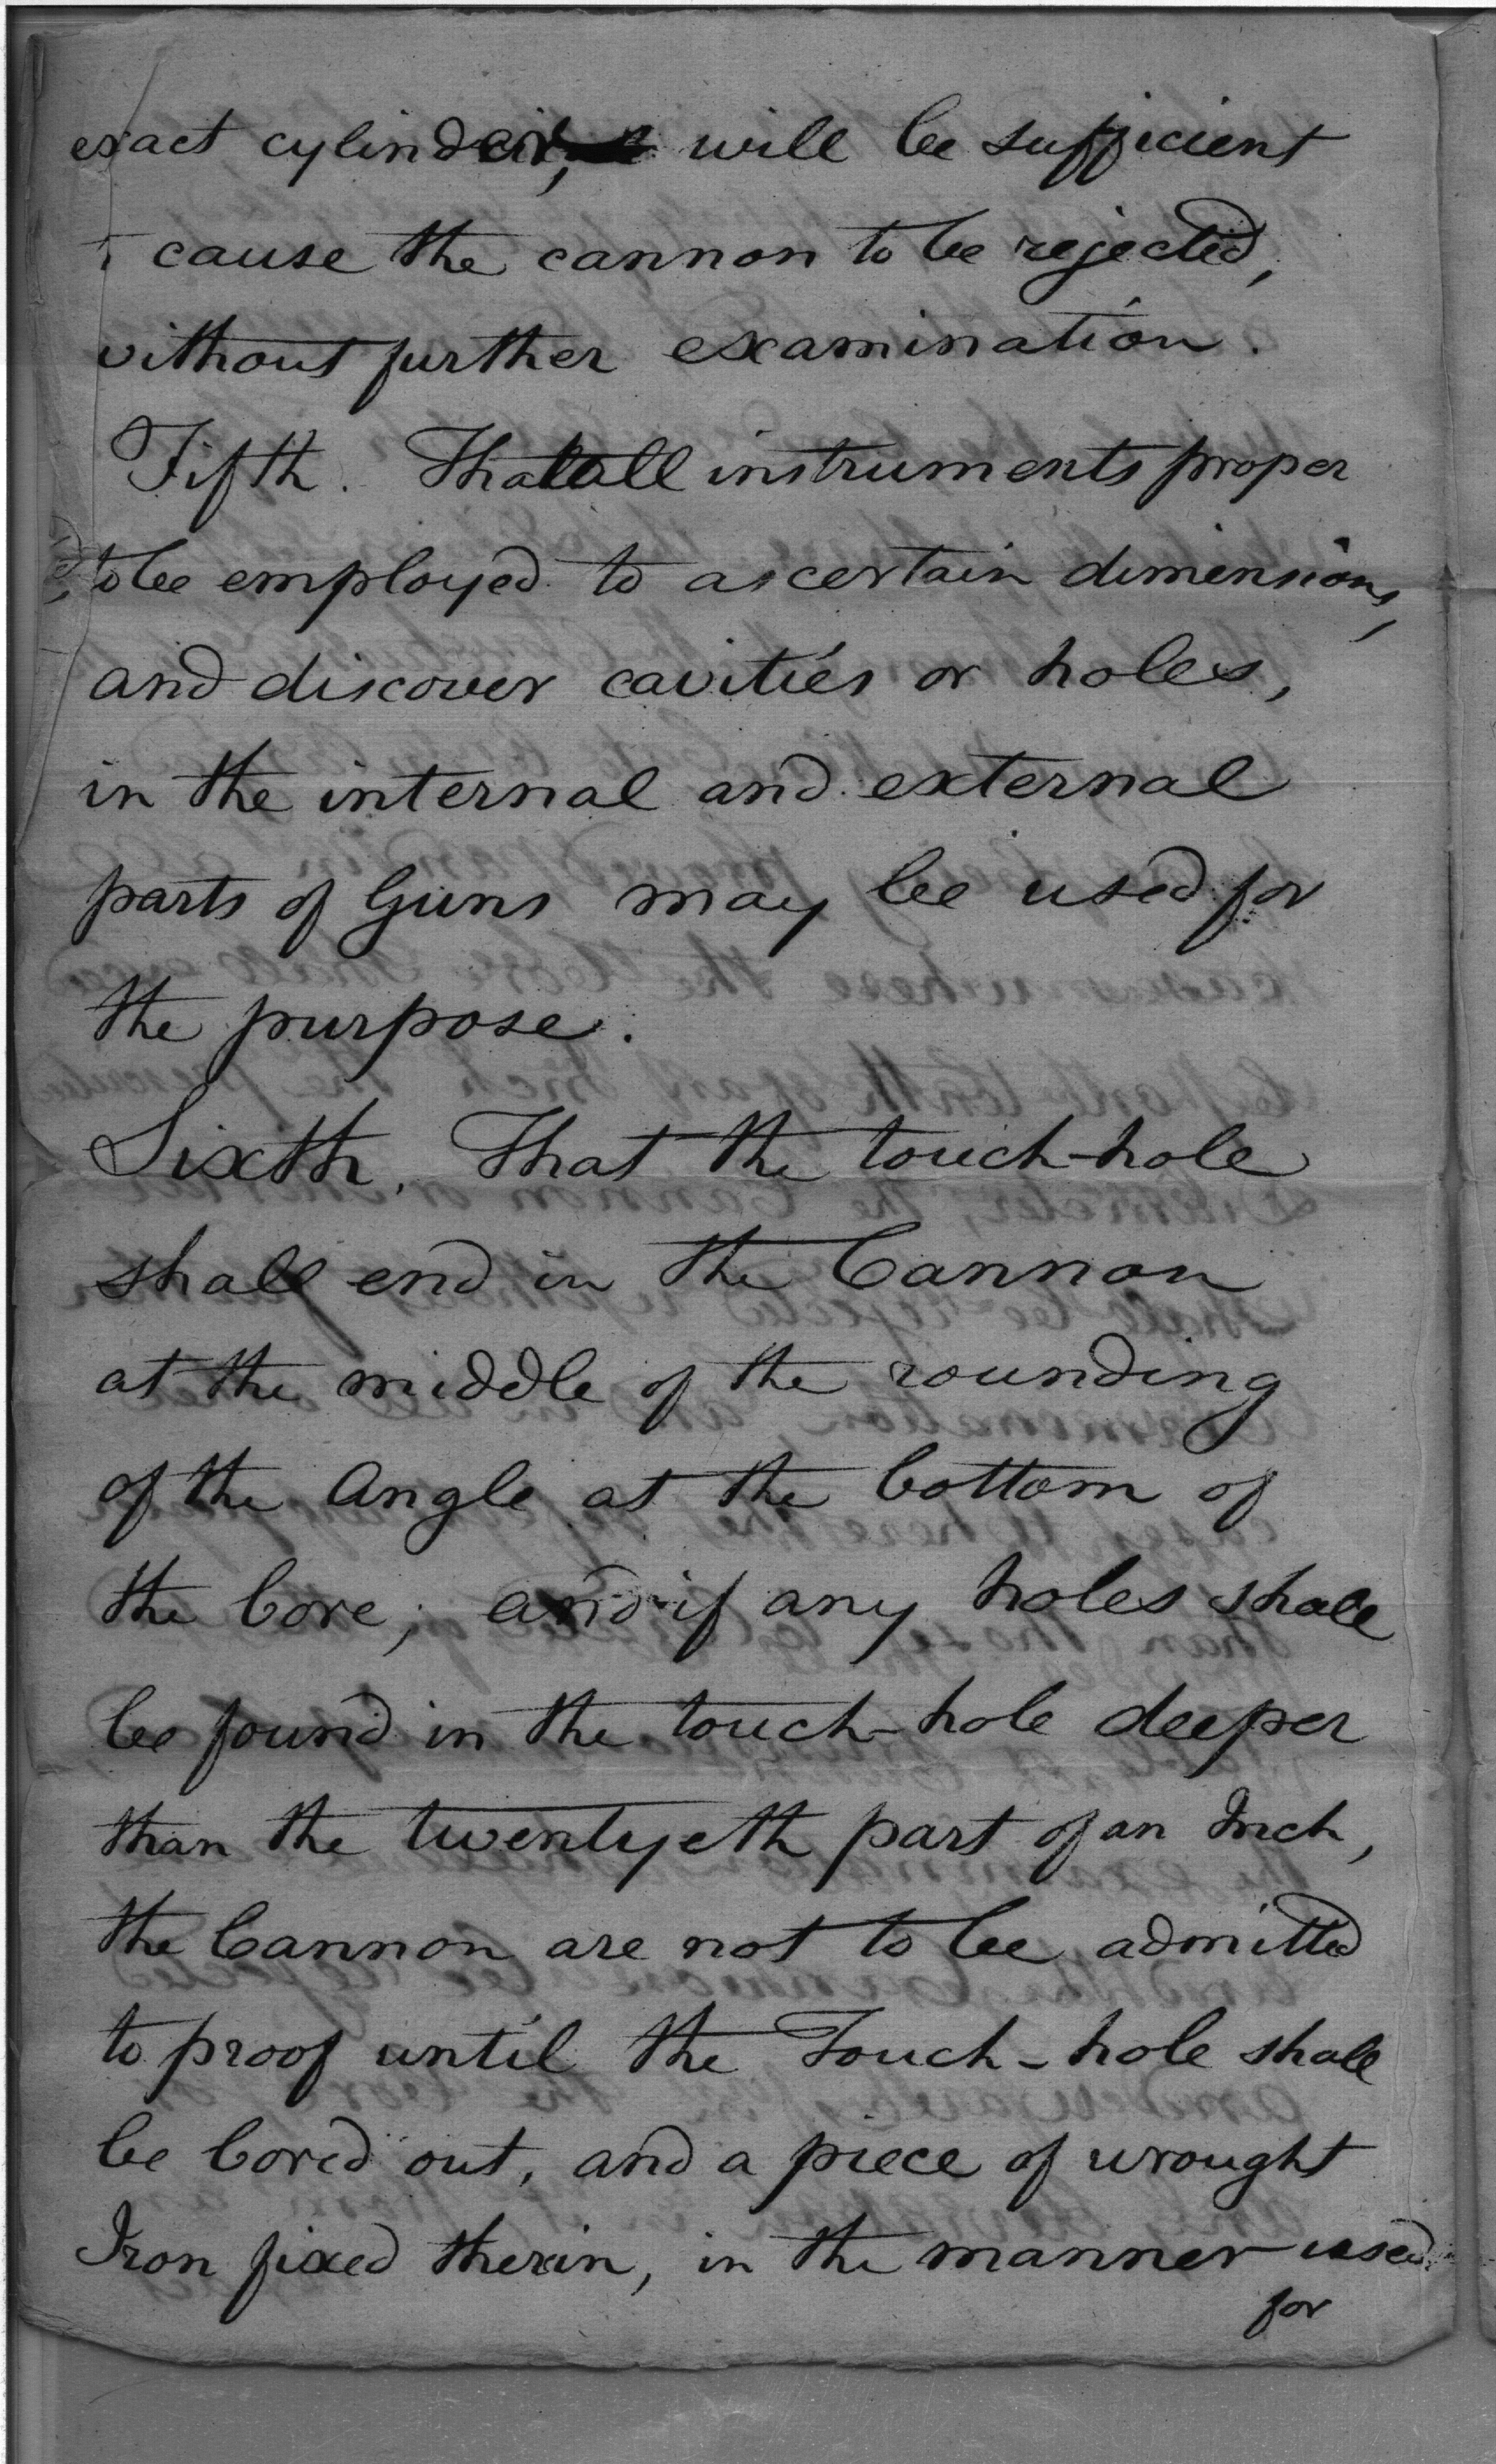 exact cylinder, will be sufficient
cause the cannon to be rejected,
without further examination.
Fifth. That all instruments proper
to be employed to ascertain dimensions,
and discover cavities or holes,
in the internal and external
parts of Guns may be used for
the purpose.
Sixth. That the touch-hole
shall end in the Cannon
at the middle of the rounding
of the Angle at the bottom of
the bore; and if any holes shall
be found in the touch-hole deeper
than the twentyeth part of an Inch,
the Cannon are not to be admitted
to proof until the Touch-hole shall
be bored out, and a piece of wrought
Iron fixed therein, in the manner used
for